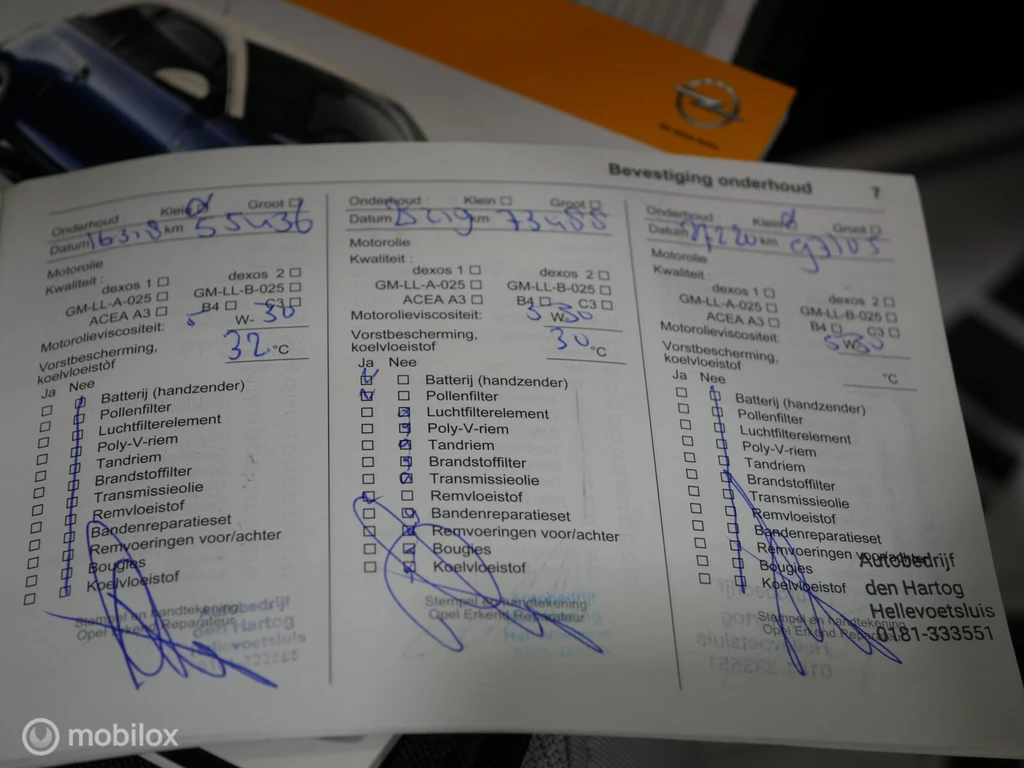 Bevestiging onderhoud 7
Onderhoud : Klein Groot
Datum 163.8 km 55436
Motorolie
Kwaliteit :
dexos 1 dexos 2
GM-LL-A-025 GM-LL-B-025
ACEA A3 B4 C3
Motorolieviscositeit: 5 W- 30
Vorstbescherming,
koelvloeistof 32 °C
Ja Nee
Batterij (handzender)
Pollenfilter
Luchtfilterelement
Poly-V-riem
Tandriem
Brandstoffilter
Transmissieolie
Remvloeistof
Bandenreparatieset
Remvoeringen voor/achter
Bougies
Koelvloeistof
Stempel en handtekening
Opel Erkend Reparateur
Autobedrijf
den Hartog
Hellevoetsluis
Onderhoud : Klein Groot
Datum km 73488
Motorolie
Kwaliteit :
dexos 1 dexos 2
GM-LL-A-025 GM-LL-B-025
ACEA A3 B4 C3
Motorolieviscositeit: 5 W- 30
Vorstbescherming,
koelvloeistof 30 °C
Ja Nee
Batterij (handzender)
Pollenfilter
Luchtfilterelement
Poly-V-riem
Tandriem
Brandstoffilter
Transmissieolie
Remvloeistof
Bandenreparatieset
Remvoeringen voor/achter
Bougies
Koelvloeistof
Stempel en handtekening
Opel Erkend Reparateur
Onderhoud : Klein Groot
Datum km 93105
Motorolie
Kwaliteit :
dexos 1 dexos 2
GM-LL-A-025 GM-LL-B-025
ACEA A3 B4 C3
Motorolieviscositeit: 5 W- 30
Vorstbescherming,
koelvloeistof °C
Ja Nee
Batterij (handzender)
Pollenfilter
Luchtfilterelement
Poly-V-riem
Tandriem
Brandstoffilter
Transmissieolie
Remvloeistof
Bandenreparatieset
Remvoeringen voor/achter
Bougies
Koelvloeistof
Stempel en handtekening
Opel Erkend Reparateur
Autobedrijf
den Hartog
Hellevoetsluis
0181-333551
mobilox